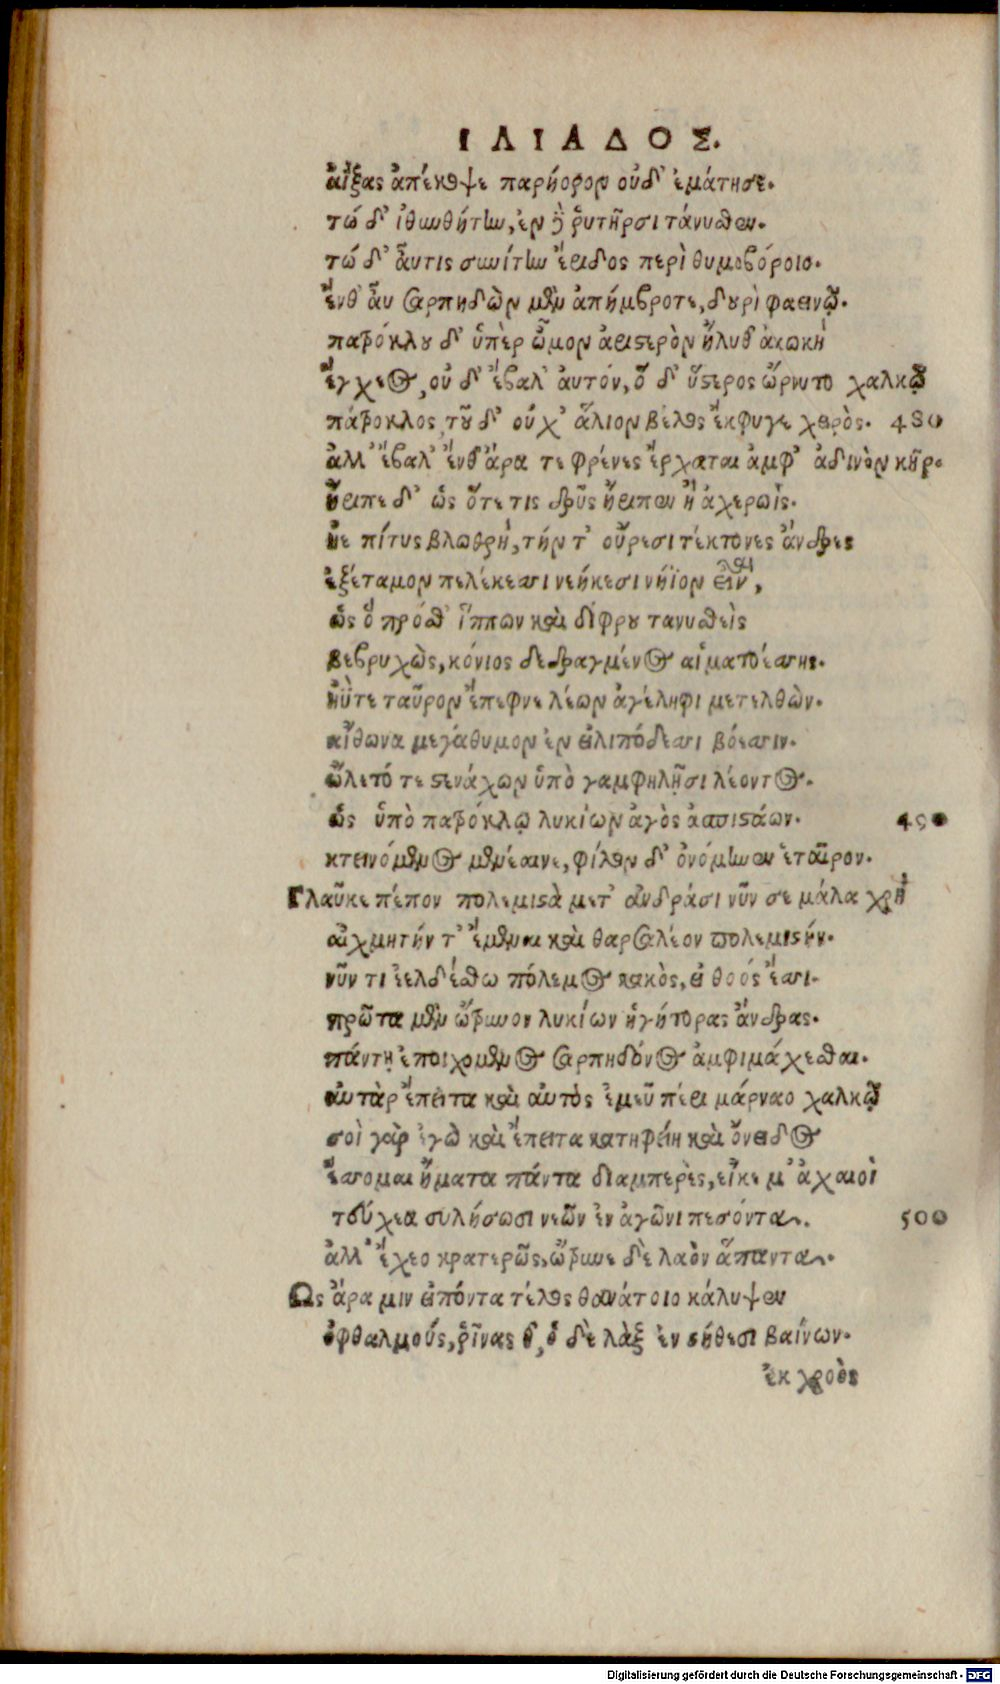 ΙΛΙΑΔΟΣ.
ἀΐξας ἀπέκοψε παρήορον οὐδ' ἐμάτησε.
τώ δ' ἰθυνθήτην, ἐν δὲ ῥυτῆρσι τάνυσθεν.
τώ δ' αὖτις συνίτην ἔειδος περὶ θυμοβόροιο.
ἔνθ' αὖ Σαρπηδὼν μὲν ἀπήμβροτε, δουρὶ φαεινῷ.
πατρόκλου δ' ὑπὲρ ὦμον ἀριστερὸν ἤλυθ' ἀκωκὴ
ἔγχεος, οὐδ' ἔβαλ' αὐτόν, ὅ δ' ὕστερος ὤρνυτο χαλκῷ
πάτροκλος, τοῦ δ' οὐχ' ἅλιον βέλος ἔκφυγε χειρὸς. 480
ἀλλ' ἔβαλ' ἔνθ' ἄρα τε φρένες ἔρχαται ἀμφ' ἀδινὸν κῆρ.
ἤειπε δ' ὡς ὅτε τις δρῦς ἤειπεν ἢ ἀχερωῒς.
ἠὲ πίτυς βλωθρὴ, τήν τ' οὔρεσι τέκτονες ἄνδρες
ἐξέταμον πελέκεσσι νεήκεσι νήϊον εἶναι,
ὣς ὁ πρόσθ' ἵππων καὶ δίφρου τανυσθεὶς
βεβρυχὼς, κόνιος δεδραγμένος αἱματοέσσης.
ἠΰτε ταῦρον ἔπεφνε λέων ἀγέληφι μετελθὼν.
αἴθωνα μεγάθυμον ἐν εἰλιπόδεσσι βόεσσιν.
ὤλετό τε στενάχων ὑπὸ γαμφηλῇσι λέοντος.
ὣς ὑπὸ πατρόκλῳ λυκίων ἀγὸς ἀσπιστάων. 490
κτεινόμενος μενέαινε, φίλον δ' ὀνόμηνεν ἑταῖρον.
Γλαῦκε πέπον πολεμιστὰ μετ' ἀνδράσι νῦν σε μάλα χρὴ
αἰχμητήν τ' ἔμεναι καὶ θαρσαλέον πολεμιστήν.
νῦν τι ἐελδέσθω πόλεμος κακὸς, εἰ θοός ἔσσι.
πρῶτα μὲν ὄτρυνον λυκίων ἡγήτορας ἄνδρας.
πάντῃ ἐποιχομένος Σαρπηδόνος ἀμφιμάχεσθαι.
αὐτὰρ ἔπειτα καὶ αὐτὸς ἐμεῦ πέρι μάρναο χαλκῷ
σοὶ γὰρ ἐγὼ καὶ ἔπειτα κατηφείη καὶ ὄνειδος
ἔσσομαι ἤματα πάντα διαμπερὲς, εἴκε μ' ἀχαιοὶ
τεύχεα συλήσωσι νεῶν ἐν ἀγῶνι πεσόντα.. 500
ἀλλ' ἔχεο κρατερῶς, ὤτρυνε δὲ λαὸν ἅπαντα.
Ως ἄρα μιν εἰπόντα τέλος θανάτοιο κάλυψεν
ὀφθαλμούς, ῥῖνας θ', ὁ δὲ λὰξ ἐν στήθεσι βαίνων.
ἐκ χροὸς
Digitalisierung gefördert durch die Deutsche Forschungsgemeinschaft - DFG